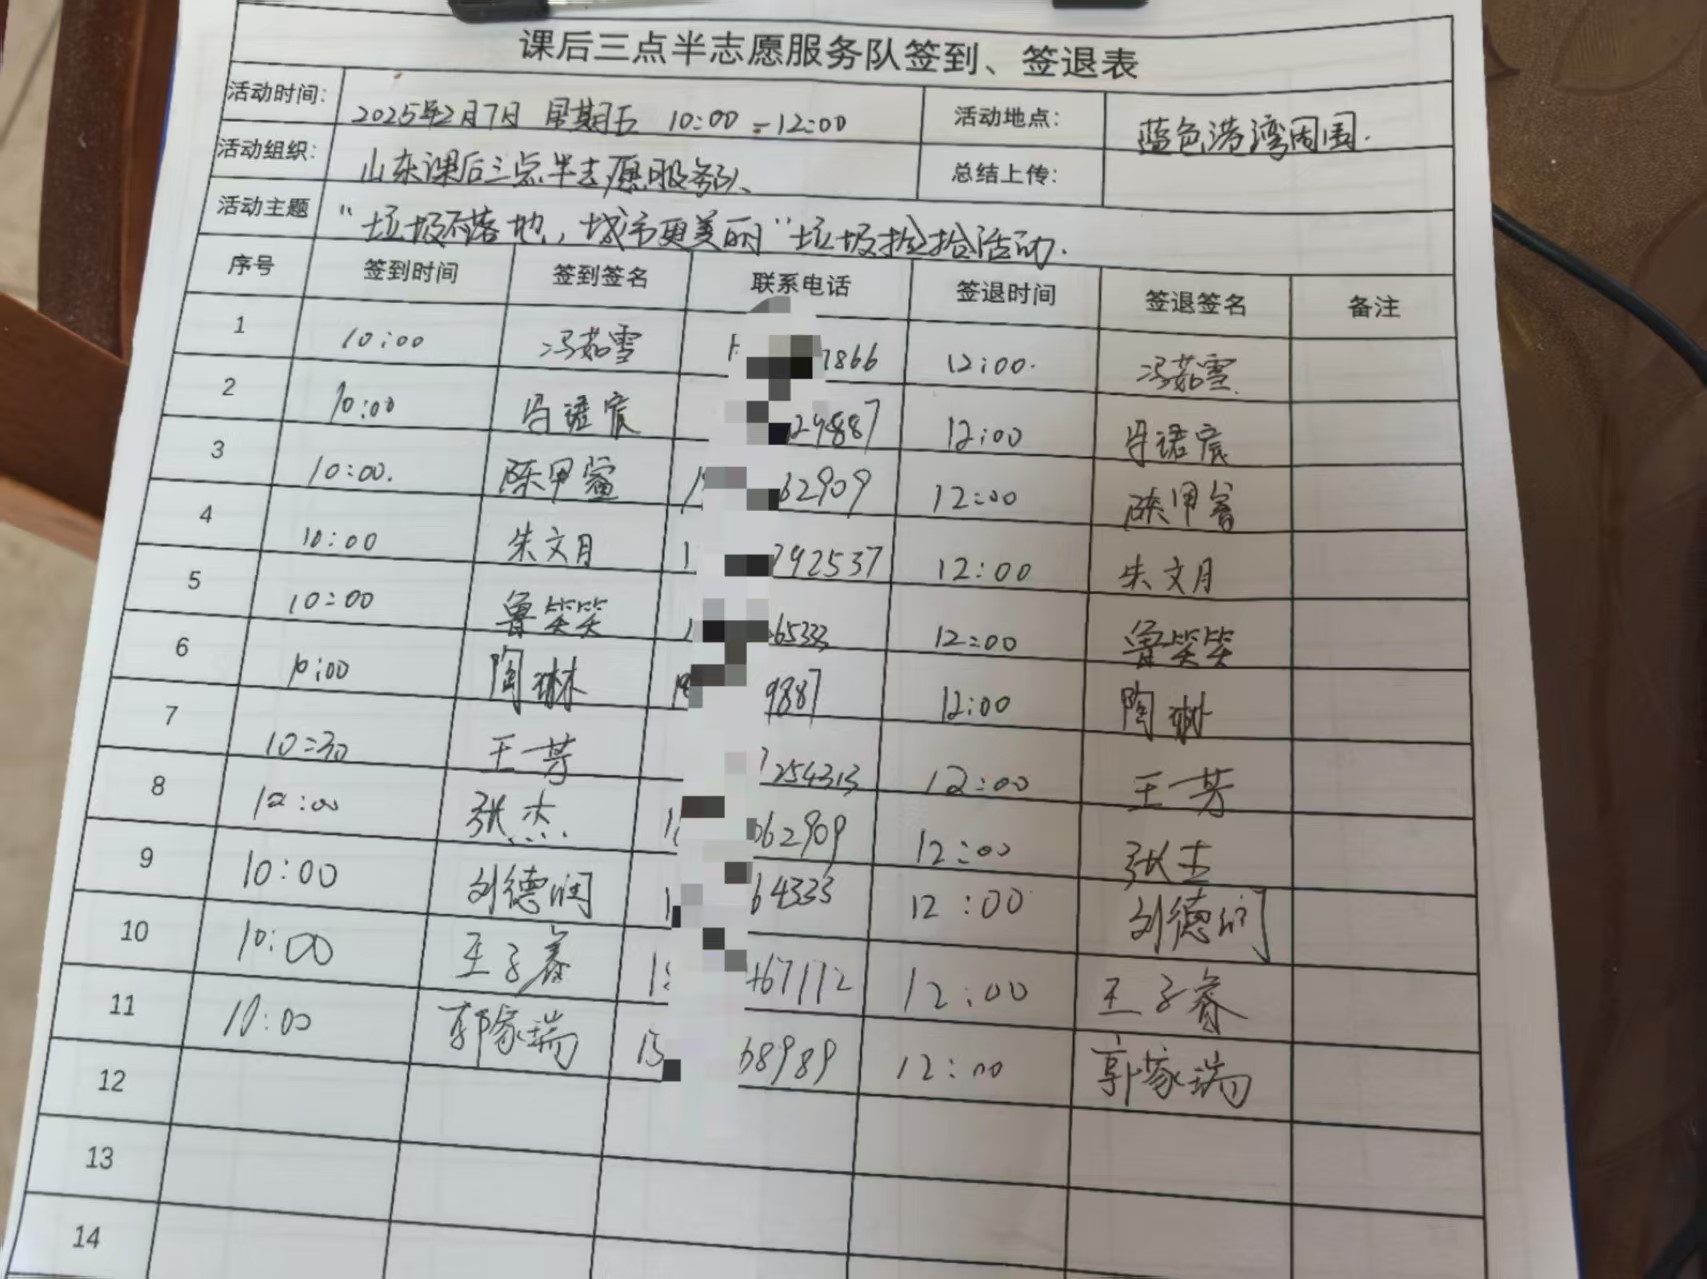 课后三点半志愿服务队签到、签退表
活动时间: 2025年2月7日 星期五 10:00-12:00 活动地点: 蓝色港湾周围.
活动组织: 山东课后三点半志愿服务队 总结上传:
活动主题 "垃圾不落地,城市更美丽"垃圾捡拾活动.
序号 签到时间 签到签名 联系电话 签退时间 签退签名 备注
1 10:00 冯茹雪 1866 12:00. 冯茹雪
2 10:00 冯诺宸 29887 12:00 冯诺宸
3 10:00. 陈甲 62909 12:00 陈甲
4 10:00 朱文月 1 292537 12:00 朱文月
5 10:00 鲁笑笑 65333 12:00 鲁笑笑
6 10:00 陶琳 9887 12:00 陶琳
7 10:30 王芳 254313 12:00 王芳
8 10:00 张杰 062909 12:00 张杰
9 10:00 刘德润 1 64333 12:00 刘德润
10 10:00 王子睿 467112 12:00 王子睿
11 10:00 郭家瑞 15 68989 12:00 郭家瑞
12
13
14